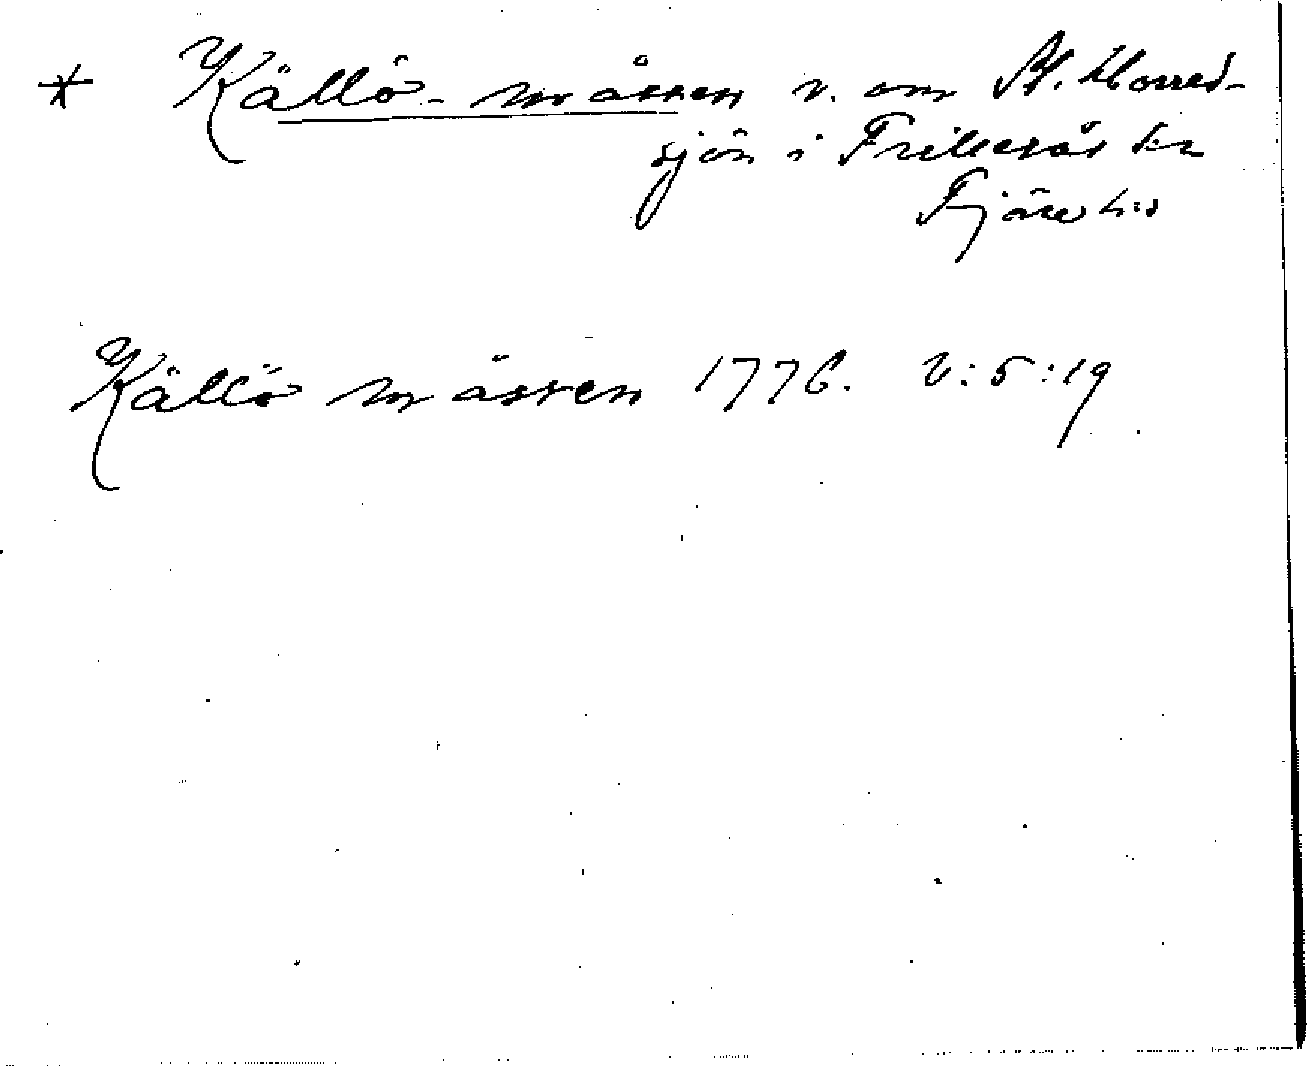 * Källö-måssen v. om St. Horred-
sjön i Frillesås sn
Fjäre hd
Källö måssen 1776. V:5:19